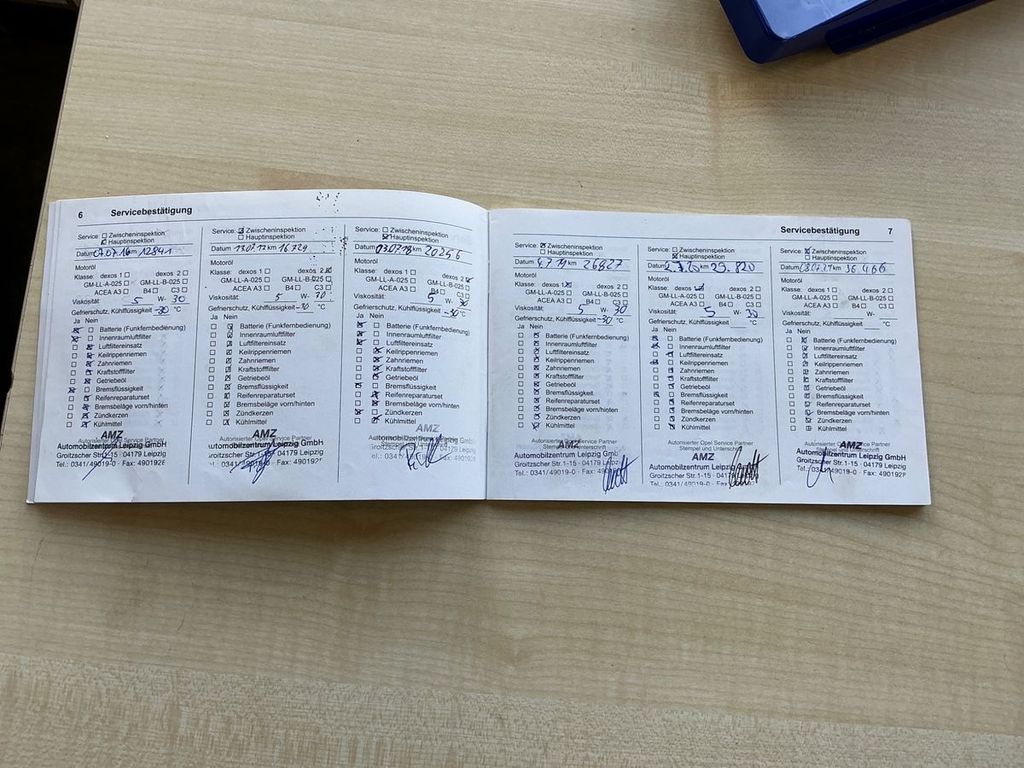 6 Servicebestätigung
Service: Zwischeninspektion
Hauptinspektion
Datum 07.07.16 km 12841
Motoröl
Klasse: dexos 1 dexos 2
GM-LL-A-025 GM-LL-B-025
ACEA A3 B4 C3
Viskosität: 5 W- 30
Gefrierschutz, Kühlflüssigkeit -30 °C
Ja Nein
Batterie (Funkfernbedienung)
Innenraumluftfilter
Luftfiltereinsatz
Keilrippenriemen
Zahnriemen
Kraftstofffilter
Getriebeöl
Bremsflüssigkeit
Reifenreparaturset
Bremsbeläge vorn/hinten
Zündkerzen
Kühlmittel
AMZ
Autorisierter Opel Service Partner
Automobilzentrum Leipzig GmbH
Groitzscher Str.1-15 · 04179 Leipzig
Tel.: 0341/49019-0 · Fax: 490192
Service: Zwischeninspektion
Hauptinspektion
Datum 13.07.17 km 16729
Motoröl
Klasse: dexos 1 dexos 2
GM-LL-A-025 GM-LL-B-025
ACEA A3 B4 C3
Viskosität: 5 W- 30
Gefrierschutz, Kühlflüssigkeit -30 °C
Ja Nein
Batterie (Funkfernbedienung)
Innenraumluftfilter
Luftfiltereinsatz
Keilrippenriemen
Zahnriemen
Kraftstofffilter
Getriebeöl
Bremsflüssigkeit
Reifenreparaturset
Bremsbeläge vorn/hinten
Zündkerzen
Kühlmittel
AMZ
Autorisierter Opel Service Partner
Automobilzentrum Leipzig GmbH
Groitzscher Str.1-15 · 04179 Leipzig
Tel.: 0341/49019-0 · Fax: 490192
Service: Zwischeninspektion
Hauptinspektion
Datum 03.07.18 km 20256
Motoröl
Klasse: dexos 1 dexos 2
GM-LL-A-025 GM-LL-B-025
ACEA A3 B4 C3
Viskosität: 5 W- 30
Gefrierschutz, Kühlflüssigkeit -30 °C
Ja Nein
Batterie (Funkfernbedienung)
Innenraumluftfilter
Luftfiltereinsatz
Keilrippenriemen
Zahnriemen
Kraftstofffilter
Getriebeöl
Bremsflüssigkeit
Reifenreparaturset
Bremsbeläge vorn/hinten
Zündkerzen
Kühlmittel
AMZ
04179 Leipzig
Servicebestätigung 7
Service: Zwischeninspektion
Hauptinspektion
Datum 4.7.19 km 26827
Motoröl
Klasse: dexos 1 dexos 2
GM-LL-A-025 GM-LL-B-025
ACEA A3 B4 C3
Viskosität: 5 W- 30
Gefrierschutz, Kühlflüssigkeit -30 °C
Ja Nein
Batterie (Funkfernbedienung)
Innenraumluftfilter
Luftfiltereinsatz
Keilrippenriemen
Zahnriemen
Kraftstofffilter
Getriebeöl
Bremsflüssigkeit
Reifenreparaturset
Bremsbeläge vorn/hinten
Zündkerzen
Kühlmittel
AMZ
Autorisierter Opel Service Partner
Automobilzentrum Leipzig
Groitzscher Str.1-15 · 04179 Leipzig
Tel.: 0341/49019-0 · Fax: 490192
Service: Zwischeninspektion
Hauptinspektion
Datum km 29.820
Motoröl
Klasse: dexos 1 dexos 2
GM-LL-A-025 GM-LL-B-025
ACEA A3 B4 C3
Viskosität: 5 W- 30
Gefrierschutz, Kühlflüssigkeit °C
Ja Nein
Batterie (Funkfernbedienung)
Innenraumluftfilter
Luftfiltereinsatz
Keilrippenriemen
Zahnriemen
Kraftstofffilter
Getriebeöl
Bremsflüssigkeit
Reifenreparaturset
Bremsbeläge vorn/hinten
Zündkerzen
Kühlmittel
Autorisierter Opel Service Partner
Stempel und Unterschrift
AMZ
Automobilzentrum Leipzig
Groitzscher Str.1-15 · 04179 Leipzig
Tel.: 0341/49019-0 · Fax
Service: Zwischeninspektion
Hauptinspektion
Datum km 36 466
Motoröl
Klasse: dexos 1 dexos 2
GM-LL-A-025 GM-LL-B-025
ACEA A3 B4 C3
Viskosität: W-
Gefrierschutz, Kühlflüssigkeit °C
Ja Nein
Batterie (Funkfernbedienung)
Innenraumluftfilter
Luftfiltereinsatz
Keilrippenriemen
Zahnriemen
Kraftstofffilter
Getriebeöl
Bremsflüssigkeit
Reifenreparaturset
Bremsbeläge vorn/hinten
Zündkerzen
Kühlmittel
AMZ
Automobilzentrum Leipzig GmbH
Groitzscher Str.1-15 · 04179 Leipzig
Tel.: 0341/49019-0 · Fax: 490192